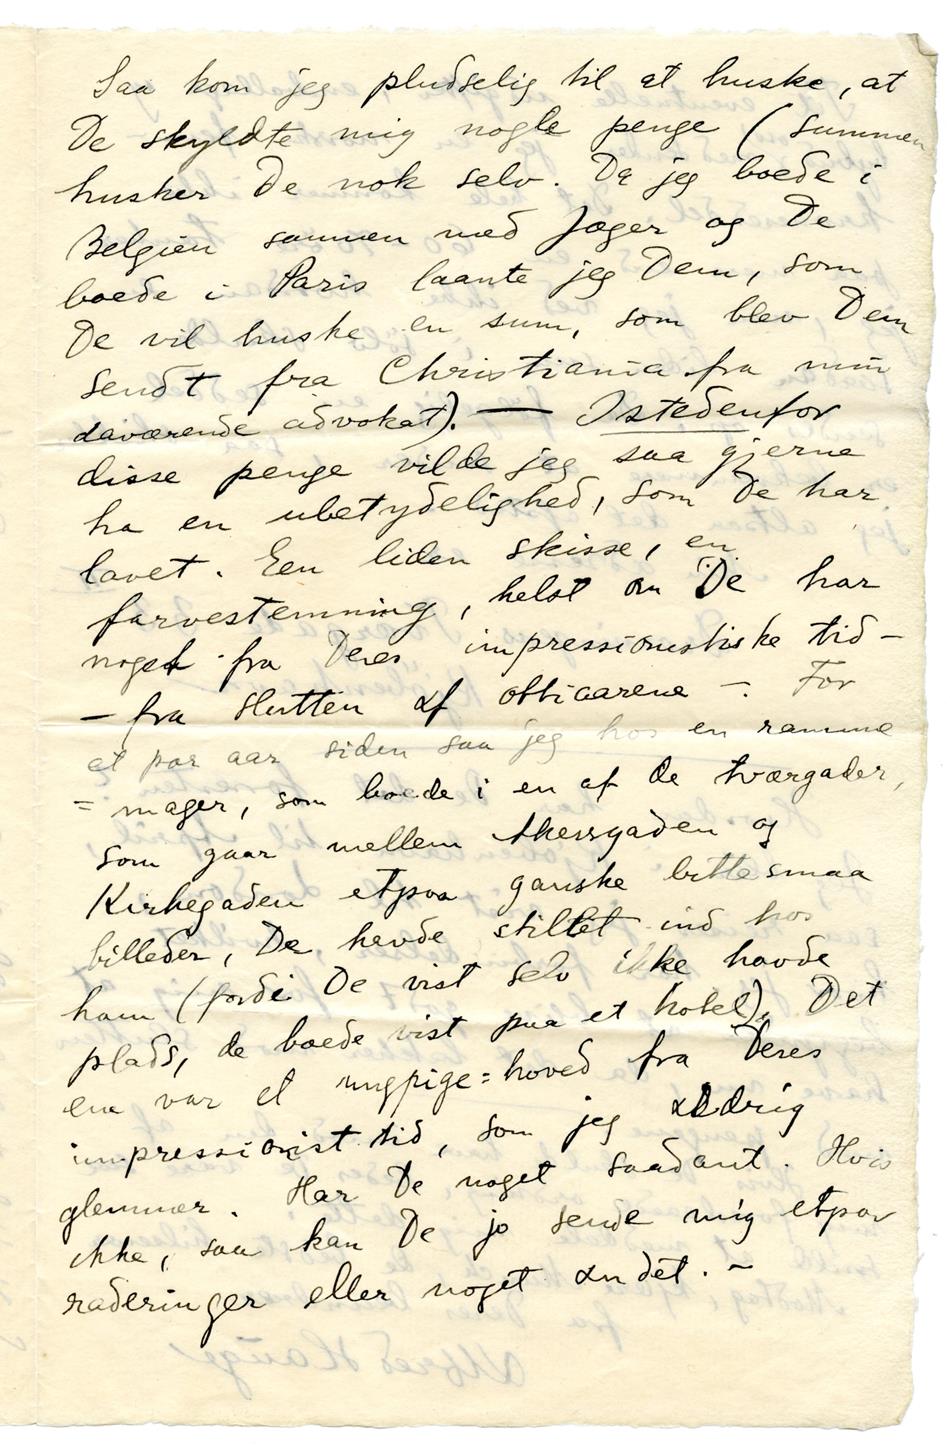 Saa kom jeg pludselig til at huske, at
De skyldte mig nogle penge (summen
husker De nok selv. Da jeg boede i
Belgien sammen med Jæger og De
boede i Paris laante jeg Dem, som
De vil huske en sum, som blev Dem
sendt fra Christiania fra min
daværende advokat). — Istedenfor
disse penge vilde jeg saa gjerne
ha en ubetydelighed, som De har
lavet. Een liden skisse, en
farvestemning, helst om De har
noget fra Deres impressionistiske tid –
– fra slutten af ottiaarene –. For
et par aar siden saa jeg hos en ramme
= mager, som boede i en af de tværgader,
som gaar mellem Akersgaden og
Kirkegaden etpar ganske bittesmaa
billeder, De havde stillet ind hos
ham (fordi De vist selv ikke havde
plads, de boede vist paa et hotel). Det
ene var et ungpige=hoved fra Deres
impressionist tid, som jeg aldrig
glemmer. Har De noget saadant. Hvis
ikke, saa kan De jo sende mig etpar
raderinger eller noget andet. –